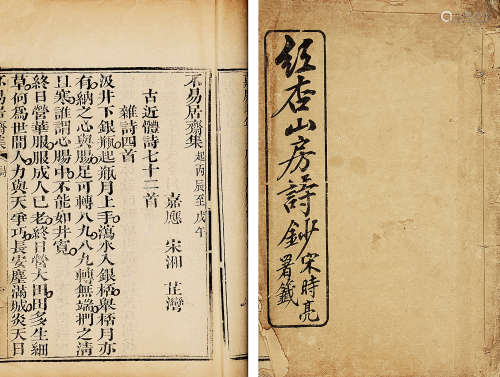 不易居齋集 起丙辰至戊午
嘉應 宋湘 芷灣
古近體詩七十二首
雜詩四首
汲井下銀瓶起瓶月上手瀉水入銀栝舉栝月亦
有納之心與腸足可轉八九八九轉無端捫之淸
且寒誰謂心腸中不能如井寬
終日營華服服成人已老終日營大田田多生細
草何爲世間人力與天爭巧長安塵滿城炎天日
不易居齋集
紅杏山房詩鈔
宋時亮
署籤